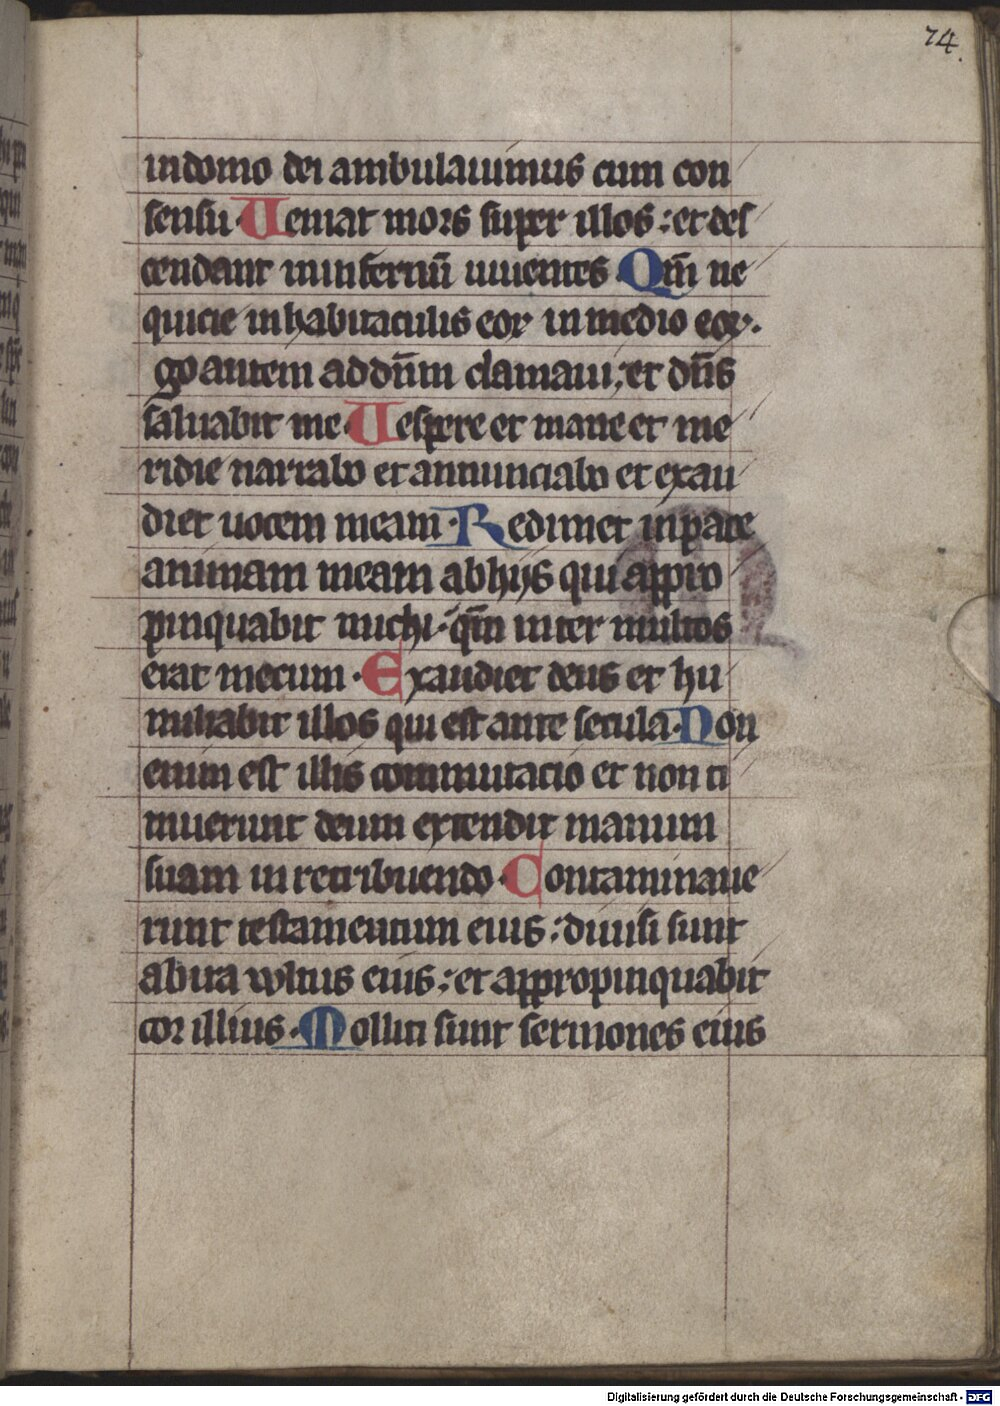 74.
in domo dei ambulauimus cum con
sensu. Ueniat mors super illos : et des
cendant in infernū uiuentes Qm̄ ne
quicie in habitaculis eoꝝ in medio eoꝝ.
go autem ad dn̄m clamaui ; et dn̄s
saluabit me. Uespere et mane et me
ridie narrabo et annunciabo et exau
diet uocem meam. Redimet in pace
animam meam ab hijs qui appro
pinquabit michi. qm̄ inter multos
erat mecum. Exaudiet deus et hu
miliabit illos qui est ante secula. Non
enim est illis commutacio et non ti
muerunt deum extendit manum
suam in retribuendo. Contaminaue
runt testamentum eius : diuisi sunt
ab ira vvltus eius ; et appropinquabit
cor illius. Molliti sunt sermones eius
Digitalisierung gefördert durch die Deutsche Forschungsgemeinschaft - DFG